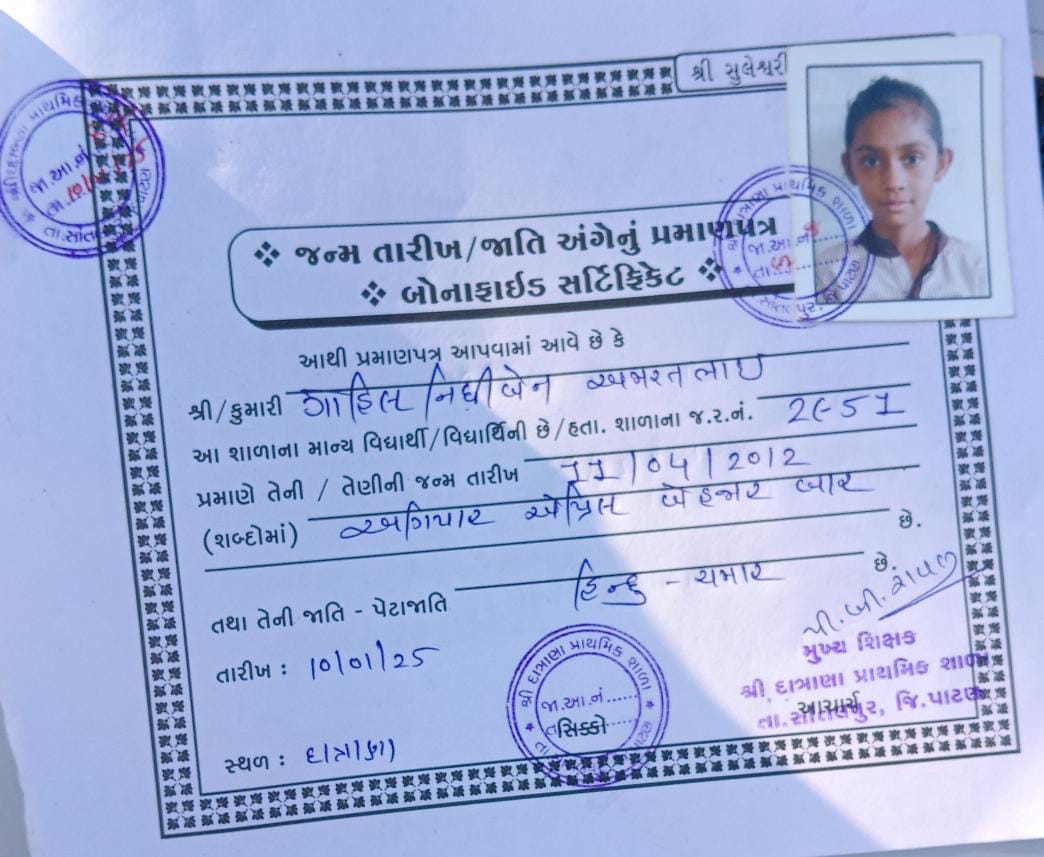 શ્રી સુલેશ્વરી
❖ જન્મ તારીખ/જાતિ અંગેનું પ્રમાણપત્ર
❖ બોનાફાઈડ સર્ટિફિકેટ ❖
આથી પ્રમાણપત્ર આપવામાં આવે છે કે
શ્રી/કુમારી ગોહિલ નિધીબેન અમરતભાઇ
આ શાળાના માન્ય વિદ્યાર્થી/વિદ્યાર્થિની છે/હતા. શાળાના જ.ર.નં. 2951
પ્રમાણે તેની / તેણીની જન્મ તારીખ 11/04/2012
(શબ્દોમાં) અગિયાર એપ્રિલ બેહજાર બાર
છે.
તથા તેની જાતિ - પેટાજાતિ હિન્દુ - ચમાર છે.
તારીખ : 10/01/25
મુખ્ય શિક્ષક
શ્રી દાત્રાણા પ્રાથમિક શાળા
આચાર્ય
તા.સાંતલપુર, જિ.પાટણ
સ્થળ : દાત્રાણા
શ્રી દાત્રાણા પ્રાથમિક શાળા
જા.આ.નં......
સિક્કો